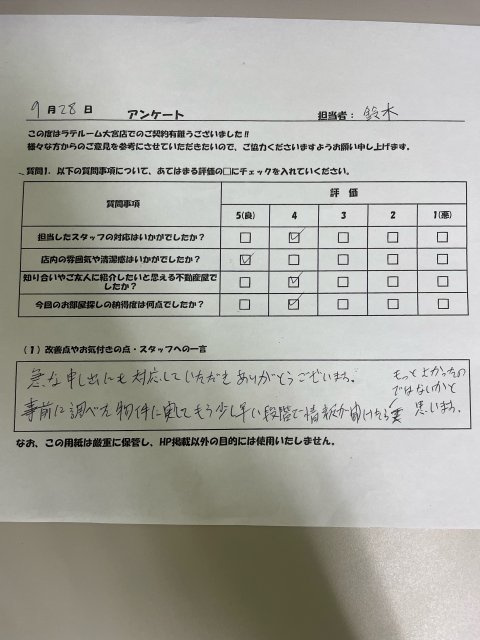 9月28日 アンケート 担当者：鈴木
この度はラテルーム大宮店でのご契約有難うございました!!
様々な方からのご意見を参考にさせていただきたいので、ご協力くださいますようお願い申し上げます。
質問1. 以下の質問事項について、あてはまる評価の□にチェックを入れていください。
質問事項 評価
5(良) 4 3 2 1(悪)
担当したスタッフの対応はいかがでしたか？ □ ☑ □ □ □
店内の雰囲気や清潔感はいかがでしたか？ ☑ □ □ □ □
知り合いやご友人に紹介したいと思える不動産屋で
したか？ □ ☑ □ □ □
今回のお部屋探しの納得度は何点でしたか？ □ ☑ □ □ □
(1) 改善点やお気付きの点・スタッフへの一言
急な申し出にも対応していただきありがとうございます。
事前に調べた物件に関してもう少し早い段階で情報が頂けたら
もっとよかったの
ではないかと
思います。
なお、この用紙は厳重に保管し、HP掲載以外の目的には使用いたしません。